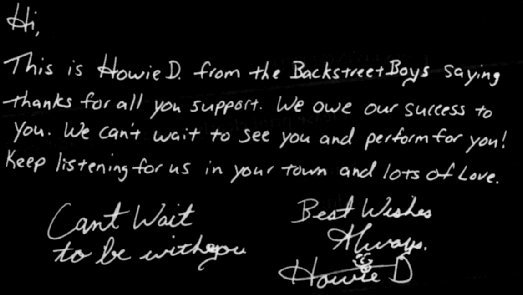 Hi,
This is Howie D. from the Backstreet Boys saying
thanks for all you support. We owe our success to
you. We can't wait to see you and perform for you!
Keep listening for us in your town and lots of Love.
Cant Wait
to be with you
Best Wishes
Always,
Howie D